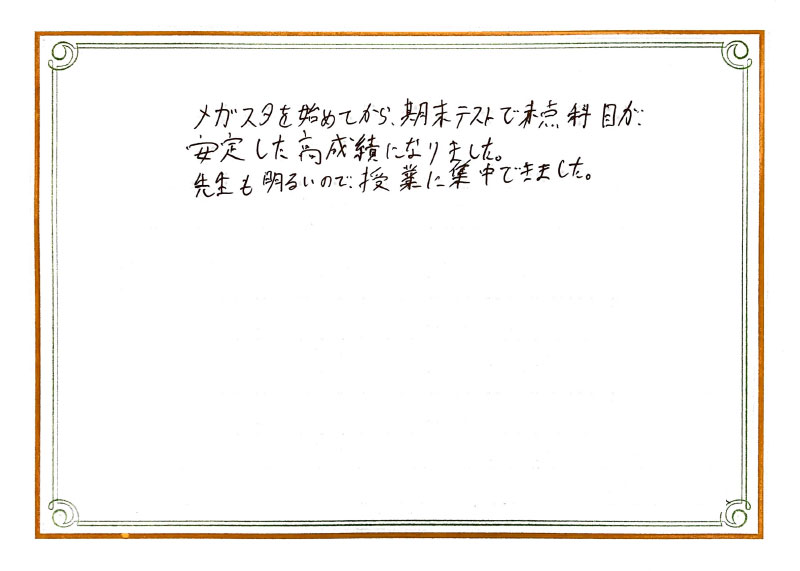 メガスタを始めてから、期末テストで赤点科目が、
安定した高成績になりました。
先生も明るいので、授業に集中できました。